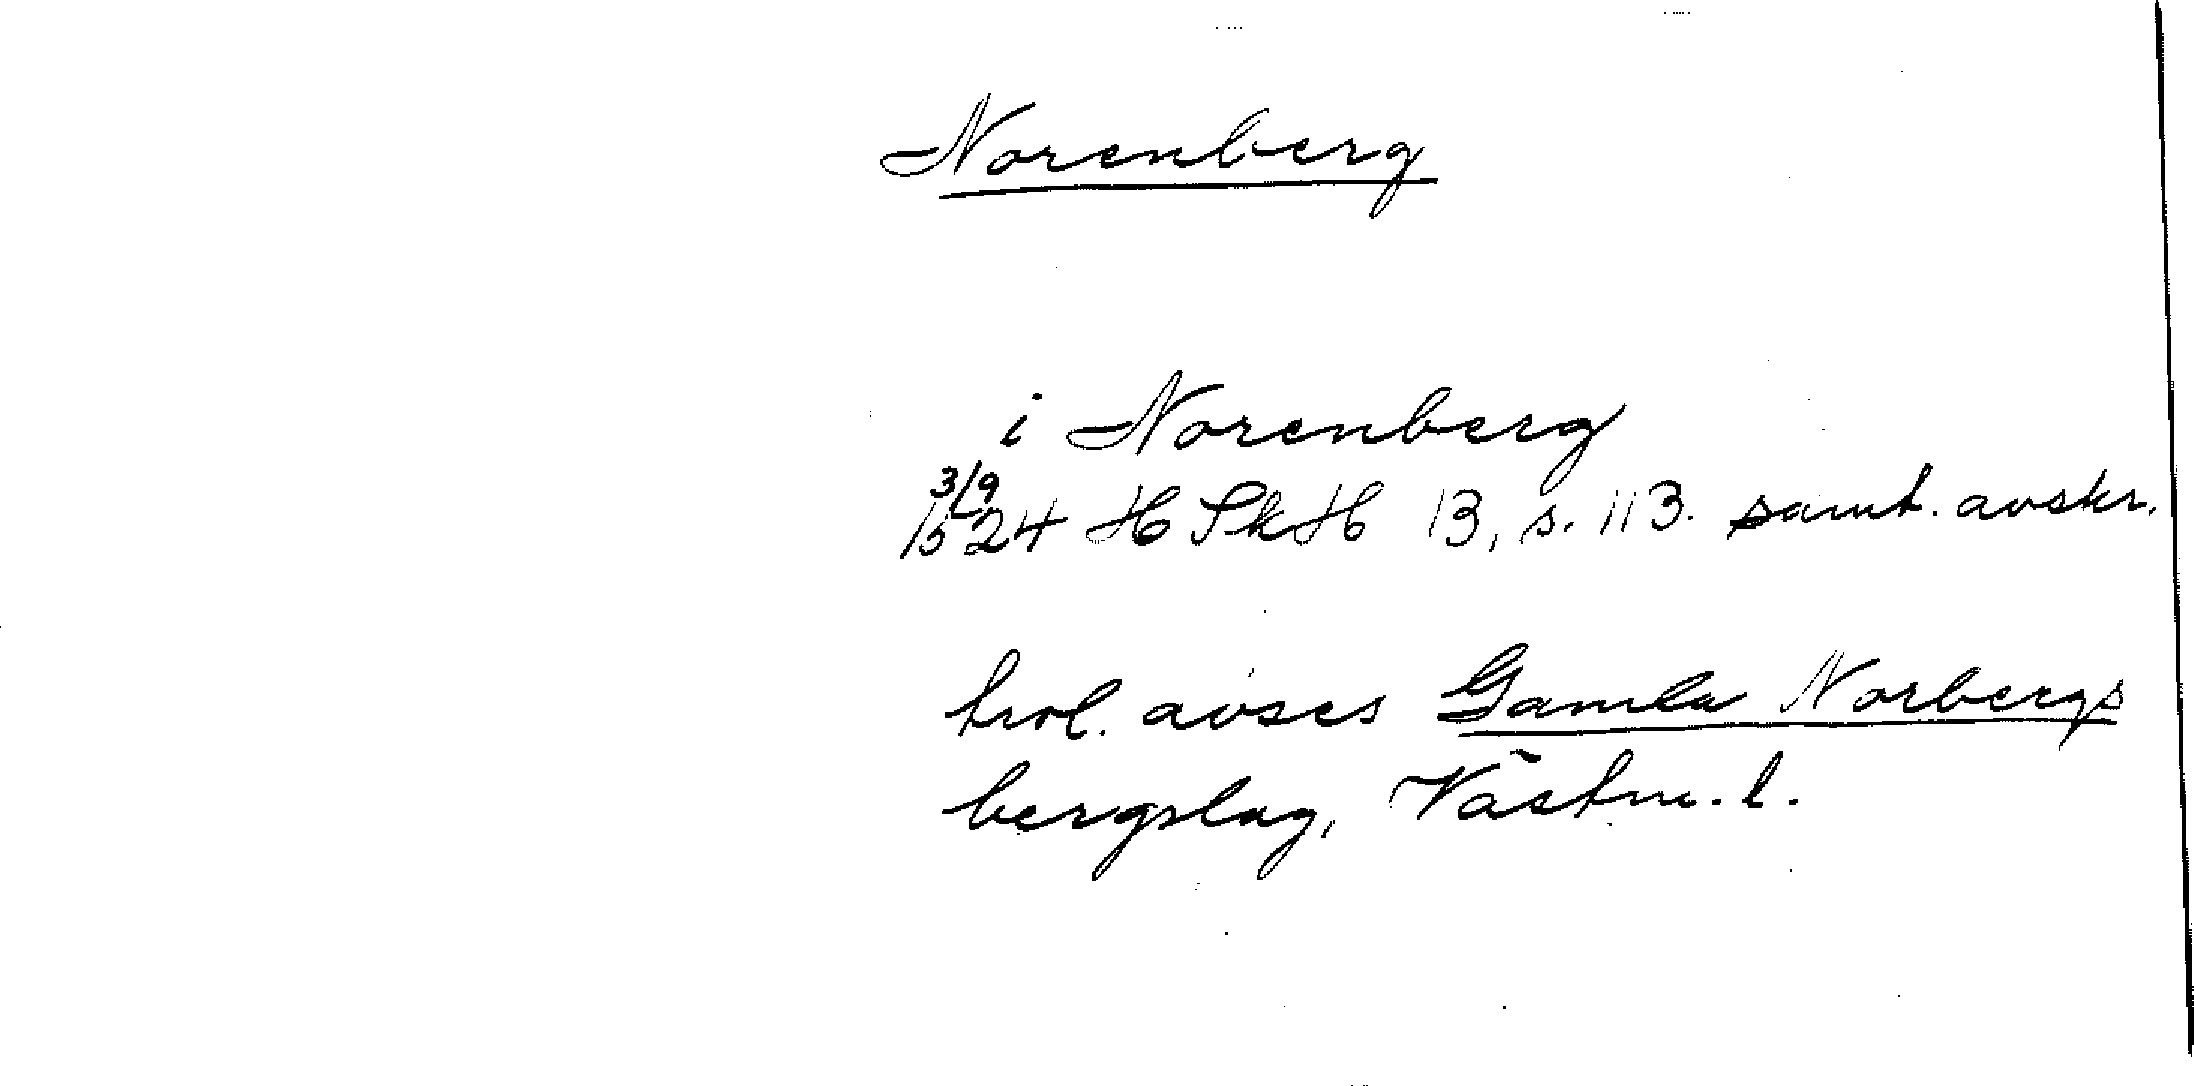 Norenberg
i Norenberg
3/9
1524 H Sk H 13, s. 113. samt. avskr.
trol. avses Gamla Norbergs
bergslag, Västm. l.